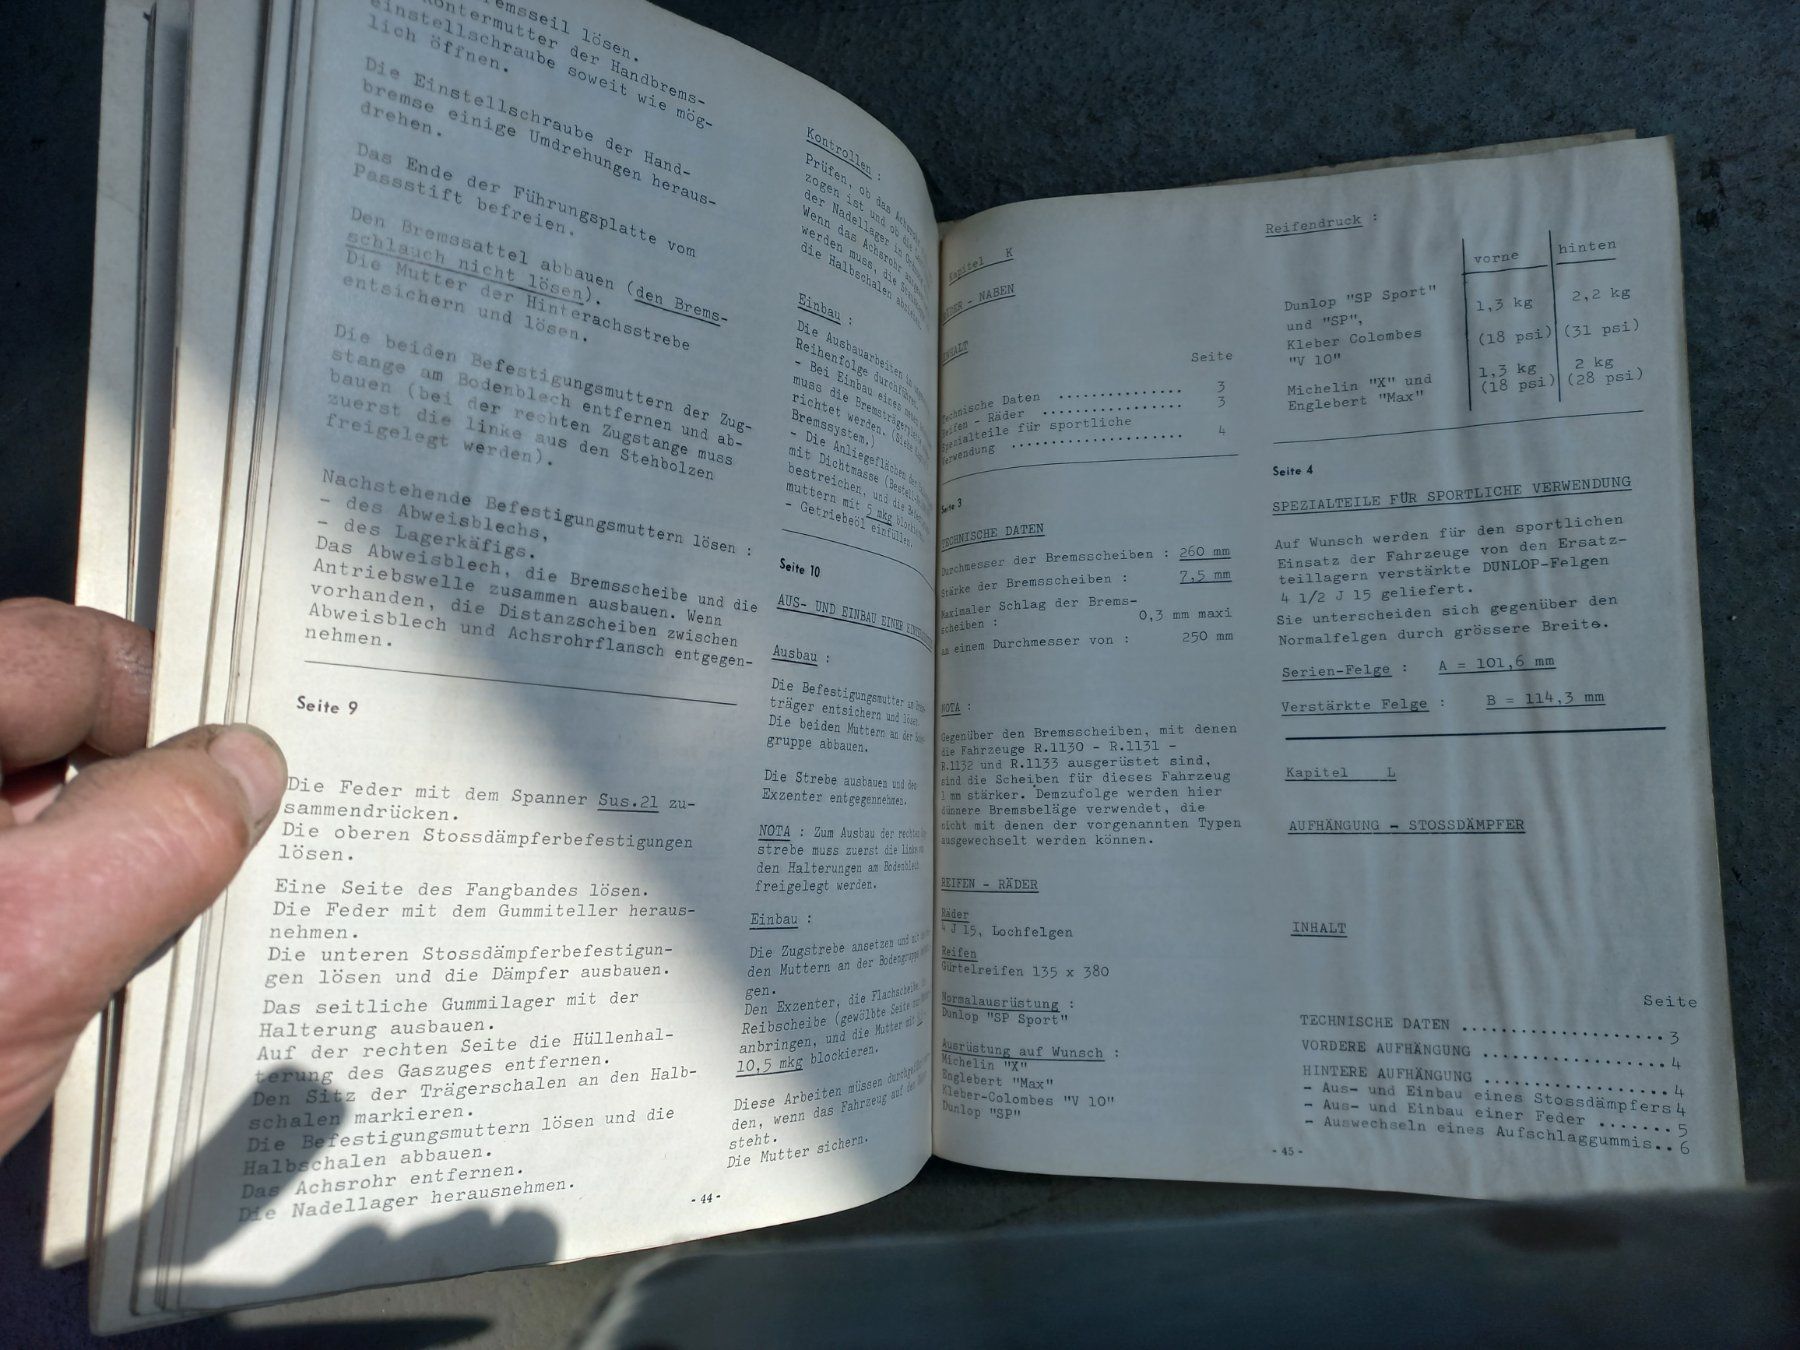 emsseil lösen.
ontermutter der Handbrems-
einstellschraube soweit wie mög-
lich öffnen.
Die Einstellschraube der Hand-
bremse einige Umdrehungen heraus-
drehen.
Das Ende der Führungsplatte vom
Passstift befreien.
Den Bremssattel abbauen (den Brems-
schlauch nicht lösen).
Die Mutter der Hinterachsstrebe
entsichern und lösen.
Die beiden Befestigungsmuttern der Zug-
stange am Bodenblech entfernen und ab-
bauen (bei der rechten Zugstange muss
zuerst die linke aus den Stehbolzen
freigelegt werden).
Nachstehende Befestigungsmuttern lösen :
- des Abweisblechs,
- des Lagerkäfigs.
Das Abweisblech, die Bremsscheibe und die
Antriebswelle zusammen ausbauen. Wenn
vorhanden, die Distanzscheiben zwischen
Abweisblech und Achsrohrflansch entgegen-
nehmen.
Seite 9
Die Feder mit dem Spanner Sus.21 zu-
sammendrücken.
Die oberen Stossdämpferbefestigungen
lösen.
Eine Seite des Fangbandes lösen.
Die Feder mit dem Gummiteller heraus-
nehmen.
Die unteren Stossdämpferbefestigun-
gen lösen und die Dämpfer ausbauen.
Das seitliche Gummilager mit der
Halterung ausbauen.
Auf der rechten Seite die Hüllenhal-
terung des Gaszuges entfernen.
Den Sitz der Trägerschalen an den Halb-
schalen markieren.
Die Befestigungsmuttern lösen und die
Halbschalen abbauen.
Das Achsrohr entfernen.
Die Nadellager herausnehmen.
Kontrollen :
Prüfen, ob das
zogen ist und ob die
der Nadellager in
Wenn das Achsrohr
werden muss, die
die Halbschalen
Einbau :
Die Ausbauarbeiten in
Reihenfolge durchführen
- Bei Einbau eines neuen
muss die
richtet werden. (Siehe
Bremssystem.)
- Die Anliegeflächen der
mit Dichtmasse
bestreichen, und die
muttern mit 5 mkg
- Getriebeöl einfüllen.
Seite 10
AUS- UND EINBAU EINER
Ausbau :
Die Befestigungsmutter am
träger entsichern und lösen.
Die beiden Muttern an der
gruppe abbauen.
Die Strebe ausbauen und den
Exzenter entgegennehmen.
NOTA : Zum Ausbau der rechten
strebe muss zuerst die linke
den Halterungen am Bodenblech
freigelegt werden.
Einbau :
Die Zugstrebe ansetzen und mit
den Muttern an der Bodengruppe
gen.
Den Exzenter, die Flachscheibe,
Reibscheibe (gewölbte Seite
anbringen, und die Mutter mit
10,5 mkg blockieren.
Diese Arbeiten müssen
den, wenn das Fahrzeug auf den
steht.
Die Mutter sichern.
- 44 -
Kapitel K
- NABEN
INHALT
Seite
Technische Daten .............. 3
Reifen - Räder ................ 3
Spezialteile für sportliche
Verwendung .................... 4
Seite 3
TECHNISCHE DATEN
Durchmesser der Bremsscheiben : 260 mm
Stärke der Bremsscheiben : 7,5 mm
Maximaler Schlag der Brems-
scheiben : 0,3 mm maxi
an einem Durchmesser von : 250 mm
NOTA :
Gegenüber den Bremsscheiben, mit denen
die Fahrzeuge R.1130 - R.1131 -
R.1132 und R.1133 ausgerüstet sind,
sind die Scheiben für dieses Fahrzeug
1 mm stärker. Demzufolge werden hier
dünnere Bremsbeläge verwendet, die
nicht mit denen der vorgenannten Typen
ausgewechselt werden können.
REIFEN - RÄDER
Räder
4 J 15, Lochfelgen
Reifen
Gürtelreifen 135 x 380
Normalausrüstung :
Dunlop "SP Sport"
Ausrüstung auf Wunsch :
Michelin "X"
Englebert "Max"
Kleber-Colombes "V 10"
Dunlop "SP"
Reifendruck :
vorne hinten
Dunlop "SP Sport" 1,3 kg 2,2 kg
und "SP",
Kleber Colombes (18 psi) (31 psi)
"V 10"
Michelin "X" und 1,3 kg 2 kg
Englebert "Max" (18 psi) (28 psi)
Seite 4
SPEZIALTEILE FÜR SPORTLICHE VERWENDUNG
Auf Wunsch werden für den sportlichen
Einsatz der Fahrzeuge von den Ersatz-
teillagern verstärkte DUNLOP-Felgen
4 1/2 J 15 geliefert.
Sie unterscheiden sich gegenüber den
Normalfelgen durch grössere Breite.
Serien-Felge : A = 101,6 mm
Verstärkte Felge : B = 114,3 mm
Kapitel L
AUFHÄNGUNG - STOSSDÄMPFER
INHALT
Seite
TECHNISCHE DATEN .................. 3
VORDERE AUFHÄNGUNG ................ 4
HINTERE AUFHÄNGUNG ................ 4
- Aus- und Einbau eines Stossdämpfers 4
- Aus- und Einbau einer Feder ....... 5
- Auswechseln eines Aufschlaggummis.. 6
- 45 -